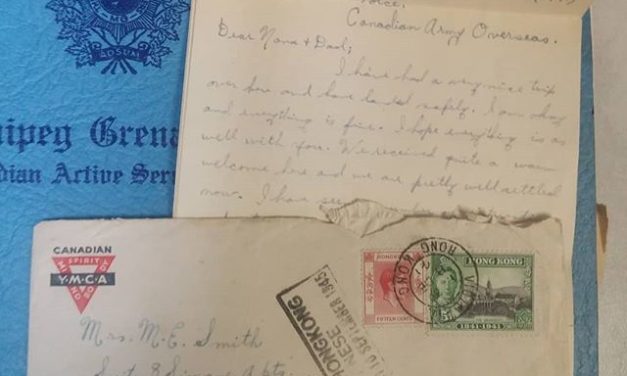 ADSUM
nipeg Grena
dian Active Ser
Force,
Canadian Army Overseas.
Dear Nana & Dad;
I have had a very nice trip
over here and have landed safely. I am okay
and everything is fine. I hope everything is as
well with you. We received quite a warm
welcome here and we are pretty well settled
now. I have see
CANADIAN
SPIRIT
Y·M·C·A
MIND
BODY
Mrs. M. E. Smith
Apts.
HONGKONG
NESE
10 SEPTEMBER 1945
HONG KONG
FIFTEEN CENTS
VICTORIA
HONG KONG
HONG KONG
5
1841-1941